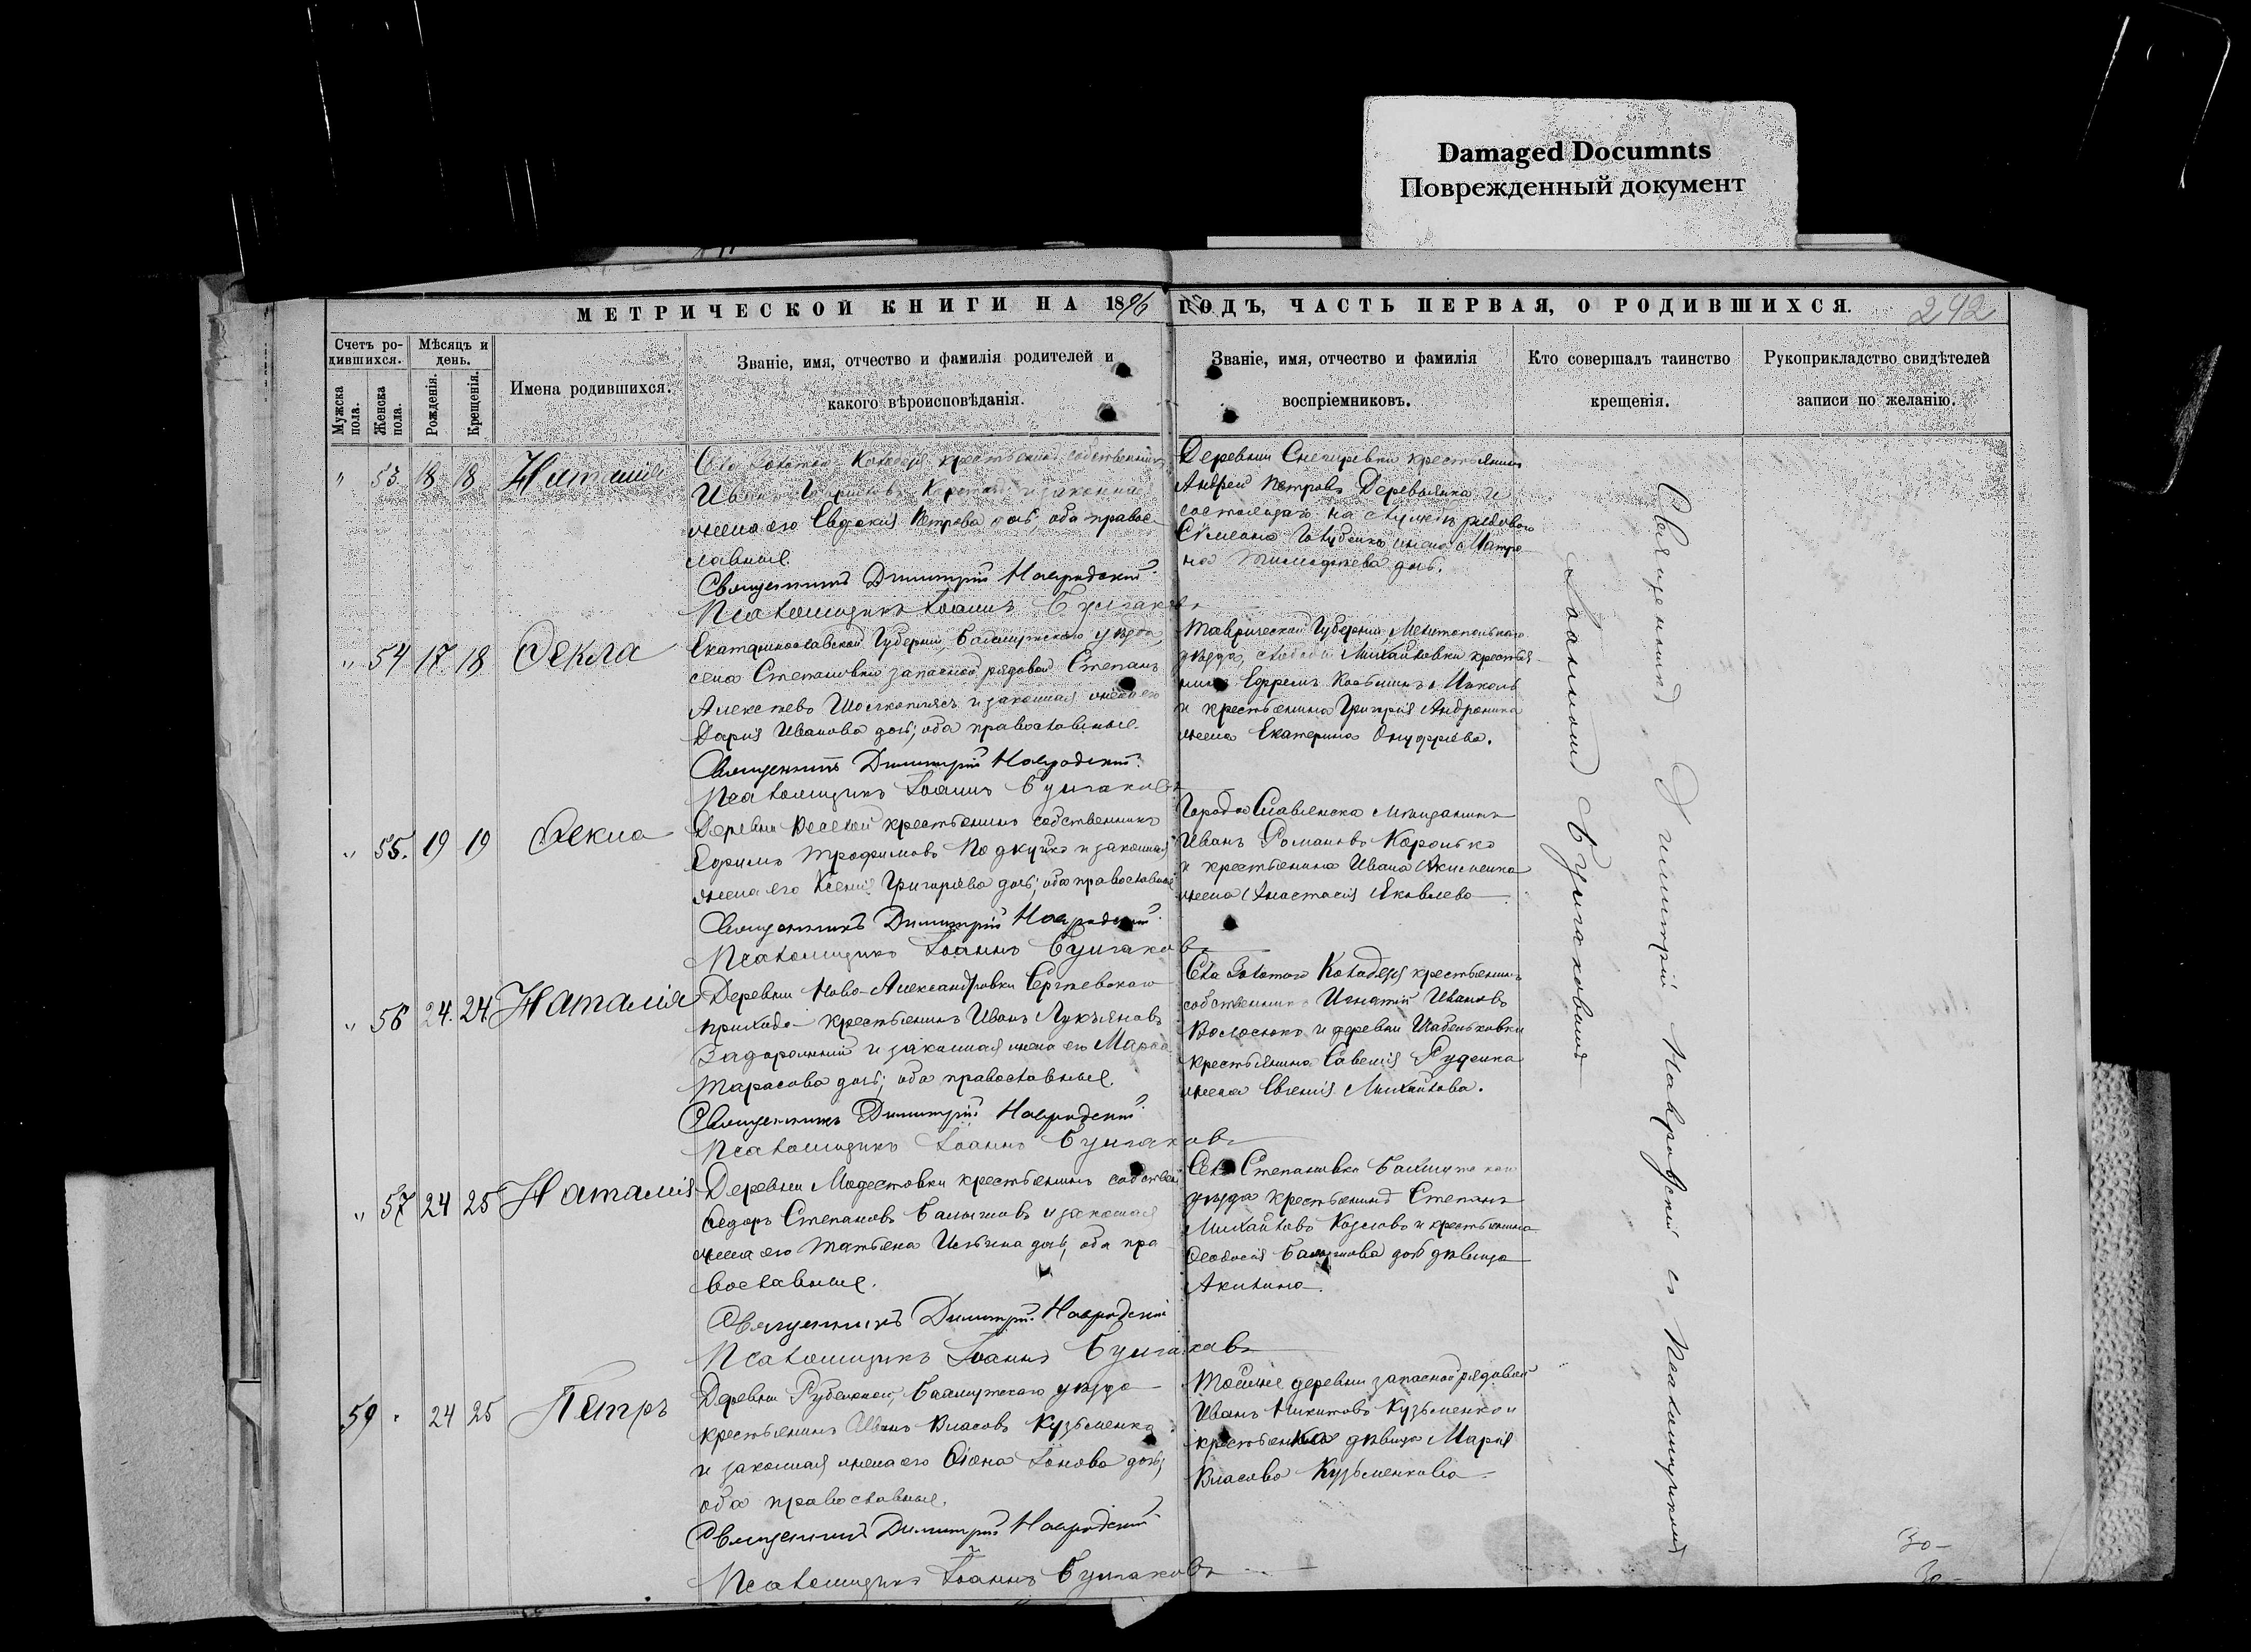 Damaged Documnts
Поврежденный документ
МЕТРИЧЕСКОЙ КНИГИ НА 1896 ГОДЪ, ЧАСТЬ ПЕРВАЯ, О РОДИВШИХСЯ.
242
Счетъ ро-
дившихся.
Мужска
пола.
Женска
пола.
Мѣсяцъ и
день.
Рожденія.
Крещенія.
Имена родившихся.
Званіе, имя, отчество и фамилія родителей и
какого вѣроисповѣданія.
Званіе, имя, отчество и фамилія
воспріемниковъ.
Кто совершалъ таинство
крещенія.
Рукоприкладство свидѣтелей
записи по желанію.
" 53. 18 18 Наталія
Села Золотой Колодезь крестьянинъ собственникъ
Иванъ и законная
жена его Евдокія Петрова дочь, оба право-
славные.
Священникъ Димитрій Навродскій
Псаломщикъ Іоаннъ Булгаковъ
Деревни Снегиревки крестьянинъ
Андрей Петровъ Деревянка и
состоящаго на службѣ рядового
Симеона Голубенко жена Матро-
на Тимофеева дочь.
" 54 17 18 Ѳекла
Екатеринославской Губерніи, Бахмутскаго уѣзда,
села Степановки запасной рядовой Степанъ
Алексѣевъ и законная жена его
Дарія Иванова дочь, оба православные.
Священникъ Димитрій Навродскій
Псаломщикъ Іоаннъ Булгаковъ
Таврической Губерніи, Мелитопольскаго
уѣзда, слободы Михайловки крестья-
нинъ Ефремъ
и крестьянина Григорія Андроника
жена Екатерина Онуфріева.
" 55. 19 19 Ѳекла
Деревни Веселой крестьянинъ собственникъ
Ефимъ Трофимовъ и законная
жена его Ксенія Григоріева дочь; оба православные
Священникъ Димитрій Навродскій
Псаломщикъ Іоаннъ Булгаковъ
Города Славянска мѣщанинъ
Иванъ Романовъ Королько
и крестьянина Ивана Акименка
жена Анастасія Яковлева
" 56 24. 24 Наталія
Деревни Ново-Александровки Сергѣевскаго
прихода крестьянинъ Иванъ Лукьяновъ
Задорожній и законная жена его Марѳа
Тарасова дочь; оба православные.
Священникъ Димитрій Навродскій
Псаломщикъ Іоаннъ Булгаковъ
Села Золотого Колодезя крестьянинъ
собственникъ Игнатій Ивановъ
Волосюкъ и деревни Шабельковки
крестьянина Савелія Руденка
жена Евгенія Михайлова.
" 57 24 25 Наталія
Деревни Модестовки крестьянинъ собствен
Ѳедоръ Степановъ Балычовъ и законная
жена его Татьяна Ильина дочь, оба пра
вославные.
Священникъ Димитрій Навродскій
Псаломщикъ Іоаннъ Булгаковъ
Села Степановки Бахмутскаго
уѣзда крестьянинъ Степанъ
Михайловъ Козловъ и крестьянина
Ѳеодосія дочь дѣвица
Акилина.
59 " 24 25 Петръ
Деревни Рубежной, Бахмутскаго уѣзда
крестьянинъ Иванъ Власовъ Кузьменко
и законная жена его Ѳіона Іонова дочь;
оба православные.
Священникъ Димитрій Навродскій
Псаломщикъ Іоаннъ Булгаковъ
Той же деревни запасной рядовой
Иванъ Никитовъ Кузьменко и
крестьянка дѣвица Марія
Власова Кузьменкова
Священникъ Димитрій Навродскій съ Псаломщикомъ
Іоанномъ Булгаковымъ
30-
30-